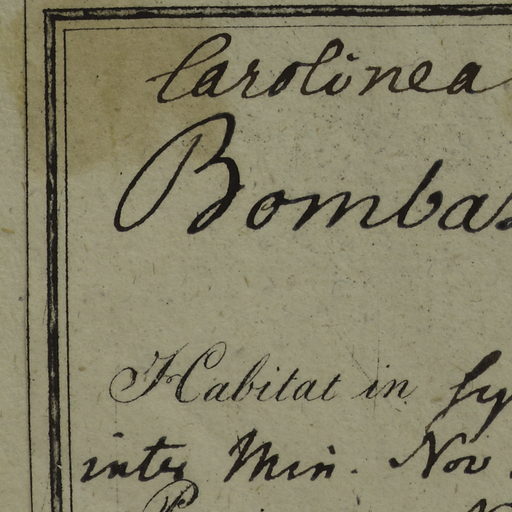 Carolinea
Bombas
Habitat in Sy
inter Min. Nov